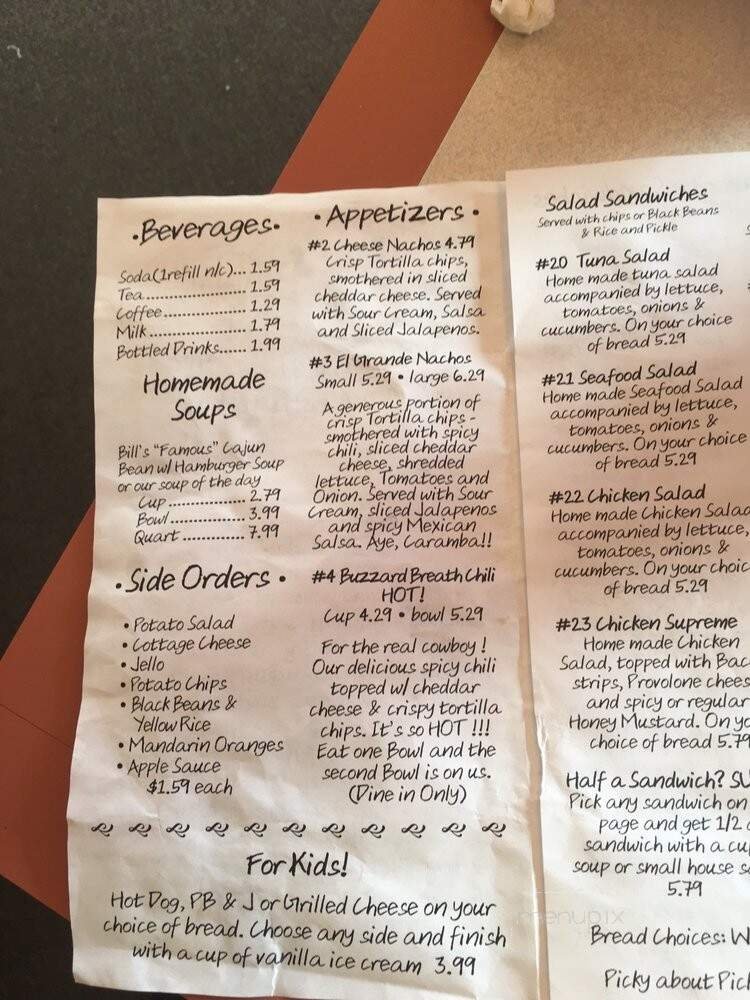 •Beverages•
Soda(1refill n/c)... 1.59
Tea........................ 1.59
Coffee................... 1.29
Milk....................... 1.79
Bottled Drinks...... 1.99
Homemade
Soups
Bill's "Famous" Cajun
Bean w/ Hamburger Soup
or our soup of the day
Cup ................ 2.79
Bowl ............... 3.99
Quart .............. 7.99
•Side Orders •
• Potato Salad
• Cottage Cheese
• Jello
• Potato Chips
• Black Beans &
Yellow Rice
• Mandarin Oranges
• Apple Sauce
$1.59 each
• Appetizers •
#2 Cheese Nachos 4.79
Crisp Tortilla chips,
smothered in sliced
cheddar cheese. Served
with Sour Cream, Salsa
and Sliced Jalapenos.
#3 El Grande Nachos
Small 5.29 • large 6.29
A generous portion of
crisp Tortilla chips -
smothered with spicy
chili, sliced cheddar
cheese, shredded
lettuce, Tomatoes and
Onion. Served with Sour
Cream, sliced Jalapenos
and spicy Mexican
Salsa. Aye, Caramba!!
#4 Buzzard Breath Chili
HOT!
Cup 4.29 • bowl 5.29
For the real cowboy !
Our delicious spicy chili
topped w/ cheddar
cheese & crispy tortilla
chips. It's so HOT !!!
Eat one Bowl and the
second Bowl is on us.
(Dine in Only)
For Kids!
Hot Dog, PB & J or Grilled Cheese on your
choice of bread. Choose any side and finish
with a cup of vanilla ice cream 3.99
Salad Sandwiches
Served with chips or Black Beans
& Rice and Pickle
#20 Tuna Salad
Home made tuna salad
accompanied by lettuce,
tomatoes, onions &
cucumbers. On your choice
of bread 5.29
#21 Seafood Salad
Home made Seafood Salad
accompanied by lettuce,
tomatoes, onions &
cucumbers. On your choice
of bread 5.29
#22 Chicken Salad
Home made Chicken Salad
accompanied by lettuce,
tomatoes, onions &
cucumbers. On your choic
of bread 5.29
#23 Chicken Supreme
Home made Chicken
Salad, topped with Bac
strips, Provolone chees
and spicy or regular
Honey Mustard. On yo
choice of bread 5.79
Half a Sandwich? SU
Pick any sandwich on
page and get 1/2
sandwich with a cu
soup or small house s
5.79
Bread Choices: W
Picky about Pic
menupix